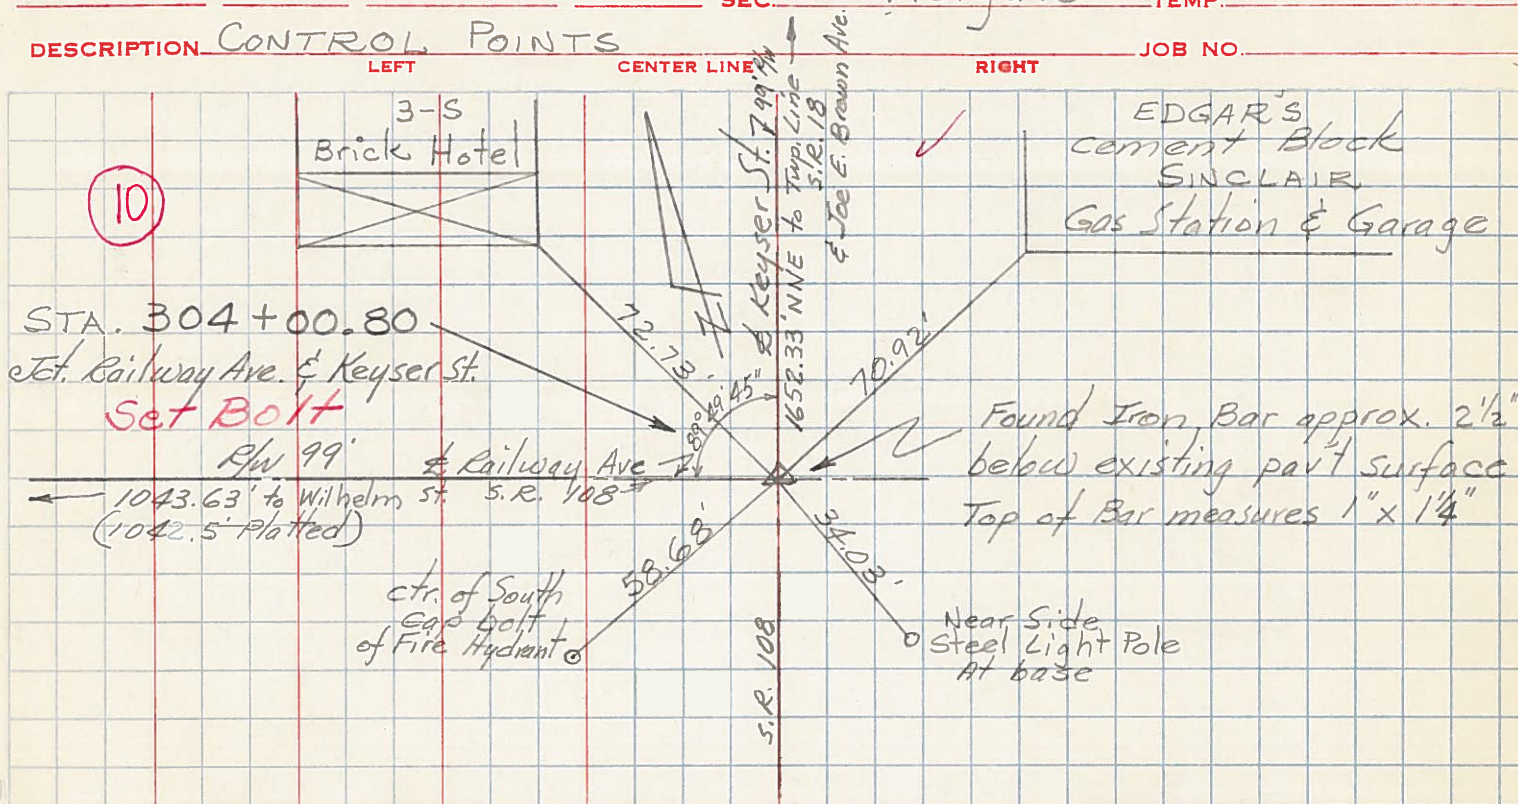 SEC.
TEMP.
DESCRIPTION CONTROL POINTS
JOB NO.
LEFT
CENTER LINE
RIGHT
3-S
Brick Hotel
10
EDGAR'S
Cement Block
SINCLAIR
Gas Station & Garage
℄ Keyser St. 99' R/W
1652.33' NNE to Twp. Line
S.R. 18
& Joe E. Brown Ave.
STA. 304+00.80
Jct. Railway Ave. & Keyser St.
Set Bolt
R/W 99'
℄ Railway Ave
1043.63' to Wilhelm St. S.R. 108
(1042.5' Platted)
72.73'
89° 49' 45"
70.92'
Found Iron Bar approx. 2 1/2"
below existing pav't surface
Top of Bar measures 1" x 1 1/4"
58.68'
34.03'
ctr. of South
Cap bolt
of Fire Hydrant
Near Side
Steel Light Pole
At base
S.R. 108